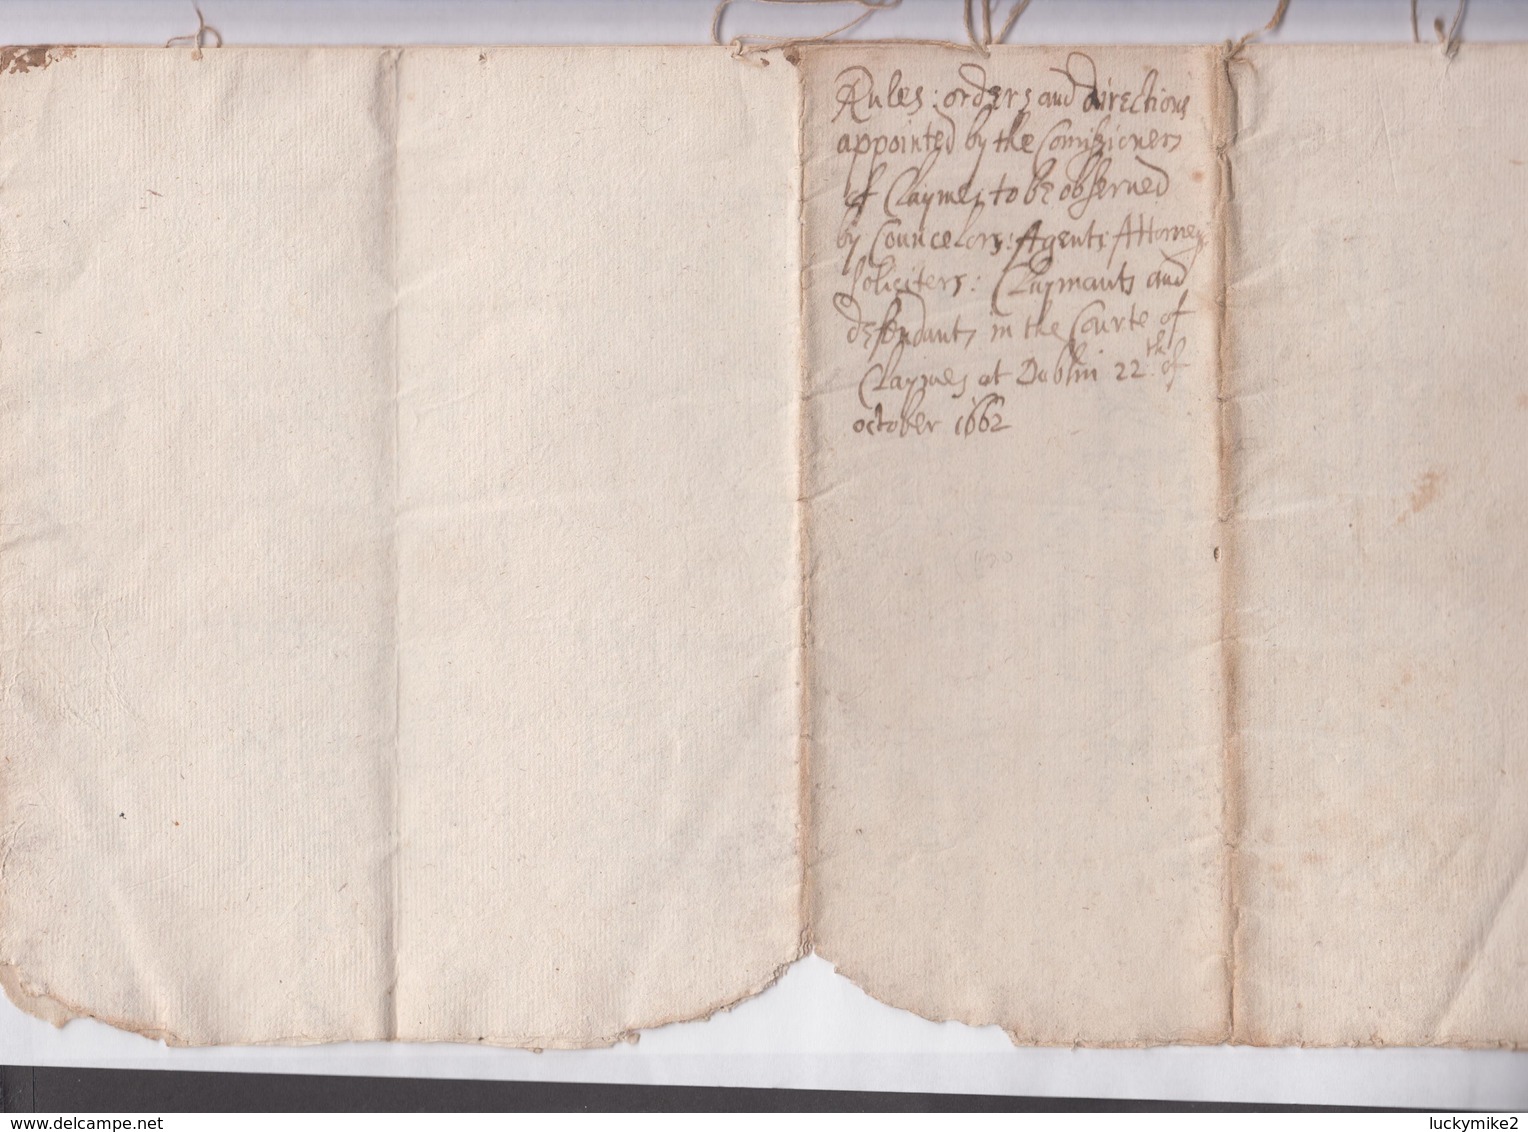 Rules: orders and directions
appointed by the Comissioners
of Claymes to be observed
by Councelors: Agents Attorneys
soliciters: Claymants and
defendants in the Courte of
Claymes at Dublin 22th of
october 1662
www.delcampe.net
luckymike2